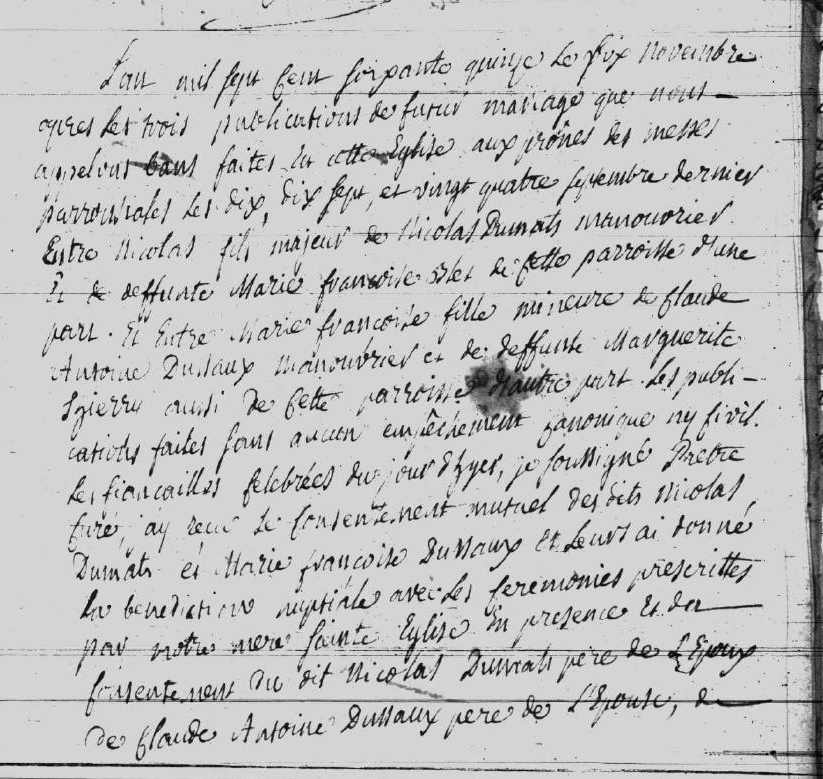 L'an mil sept cent soixante quinze le six novembre
apres les trois publications de futur mariage que nous
appelons bans faites en cette Eglise aux prônes des messes
parroissiales les dix, dix sept, et vingt quatre septembre dernier
Entre Nicolas fils majeur de Nicolas Dumats manouvrier
Et de deffunte Marie francoise de cette parroisse d'une
part. Et Entre Marie francoise fille mineure de Claude
Antoine Dussaux manouvrier et de deffunte Marguerite
aussi de cette parroisse d'autre part. les publi-
cations faites sans aucun empêchement canonique ny civil.
les fiancailles celebrées du jour d'hyer, je soussigné Pretre
Curé, ay recu le consentement mutuel des dits Nicolas
Dumats et Marie francoise Dussaux et leurs ai donné
la benediction nuptiale avec les ceremonies prescrittes
par notre mere sainte Eglise En presence Et du
consentement du dit Nicolas Dumats pere de L'Epoux
de Claude Antoine Dussaux pere de L'Epouse, de